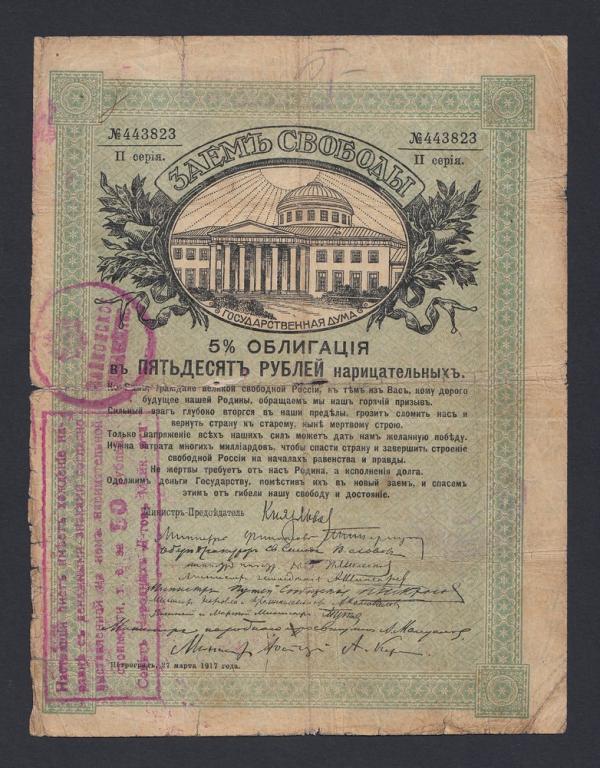 №443823
II серія.
№443823
II серія.
ЗАЕМЪ СВОБОДЫ
ГОСУДАРСТВЕННАЯ ДУМА
5% ОБЛИГАЦІЯ
въ ПЯТЬДЕСЯТЪ РУБЛЕЙ нарицательныхъ.
граждане великой свободной Россіи, къ тѣмъ изъ Васъ, кому дорого
будущее нашей Родины, обращаемъ мы нашъ горячій призывъ.
Сильный врагъ глубоко вторгся въ наши предѣлы, грозитъ сломить насъ и
вернуть страну къ старому, нынѣ мертвому строю.
Только напряженіе всѣхъ нашихъ силъ можетъ дать намъ желанную побѣду.
Нужна затрата многихъ милліардовъ, чтобы спасти страну и завершить строеніе
свободной Россіи на началахъ равенства и правды.
Не жертвы требуетъ отъ насъ Родина, а исполненія долга.
Одолжимъ деньги Государству, помѣстивъ ихъ въ новый заемъ, и спасемъ
этимъ отъ гибели нашу свободу и достояніе.
Министръ-Предсѣдатель Князь Львовъ
Министръ Финансовъ
Оберъ Прокуроръ Св. Синода В. Львовъ
Министръ земледѣлія А. Шингаревъ
Министръ Путей Сообщенія
Министръ народнаго просвѣщенія А. Мануйловъ
Министръ Юстиціи А. Кер
Петроградъ, 27 марта 1917 года.
Настоящій листъ имѣетъ хожденіе на-
равнѣ съ денежными знаками согласно
выставленной на немъ нарицательной
стоимости, т. е. за 50 рублей